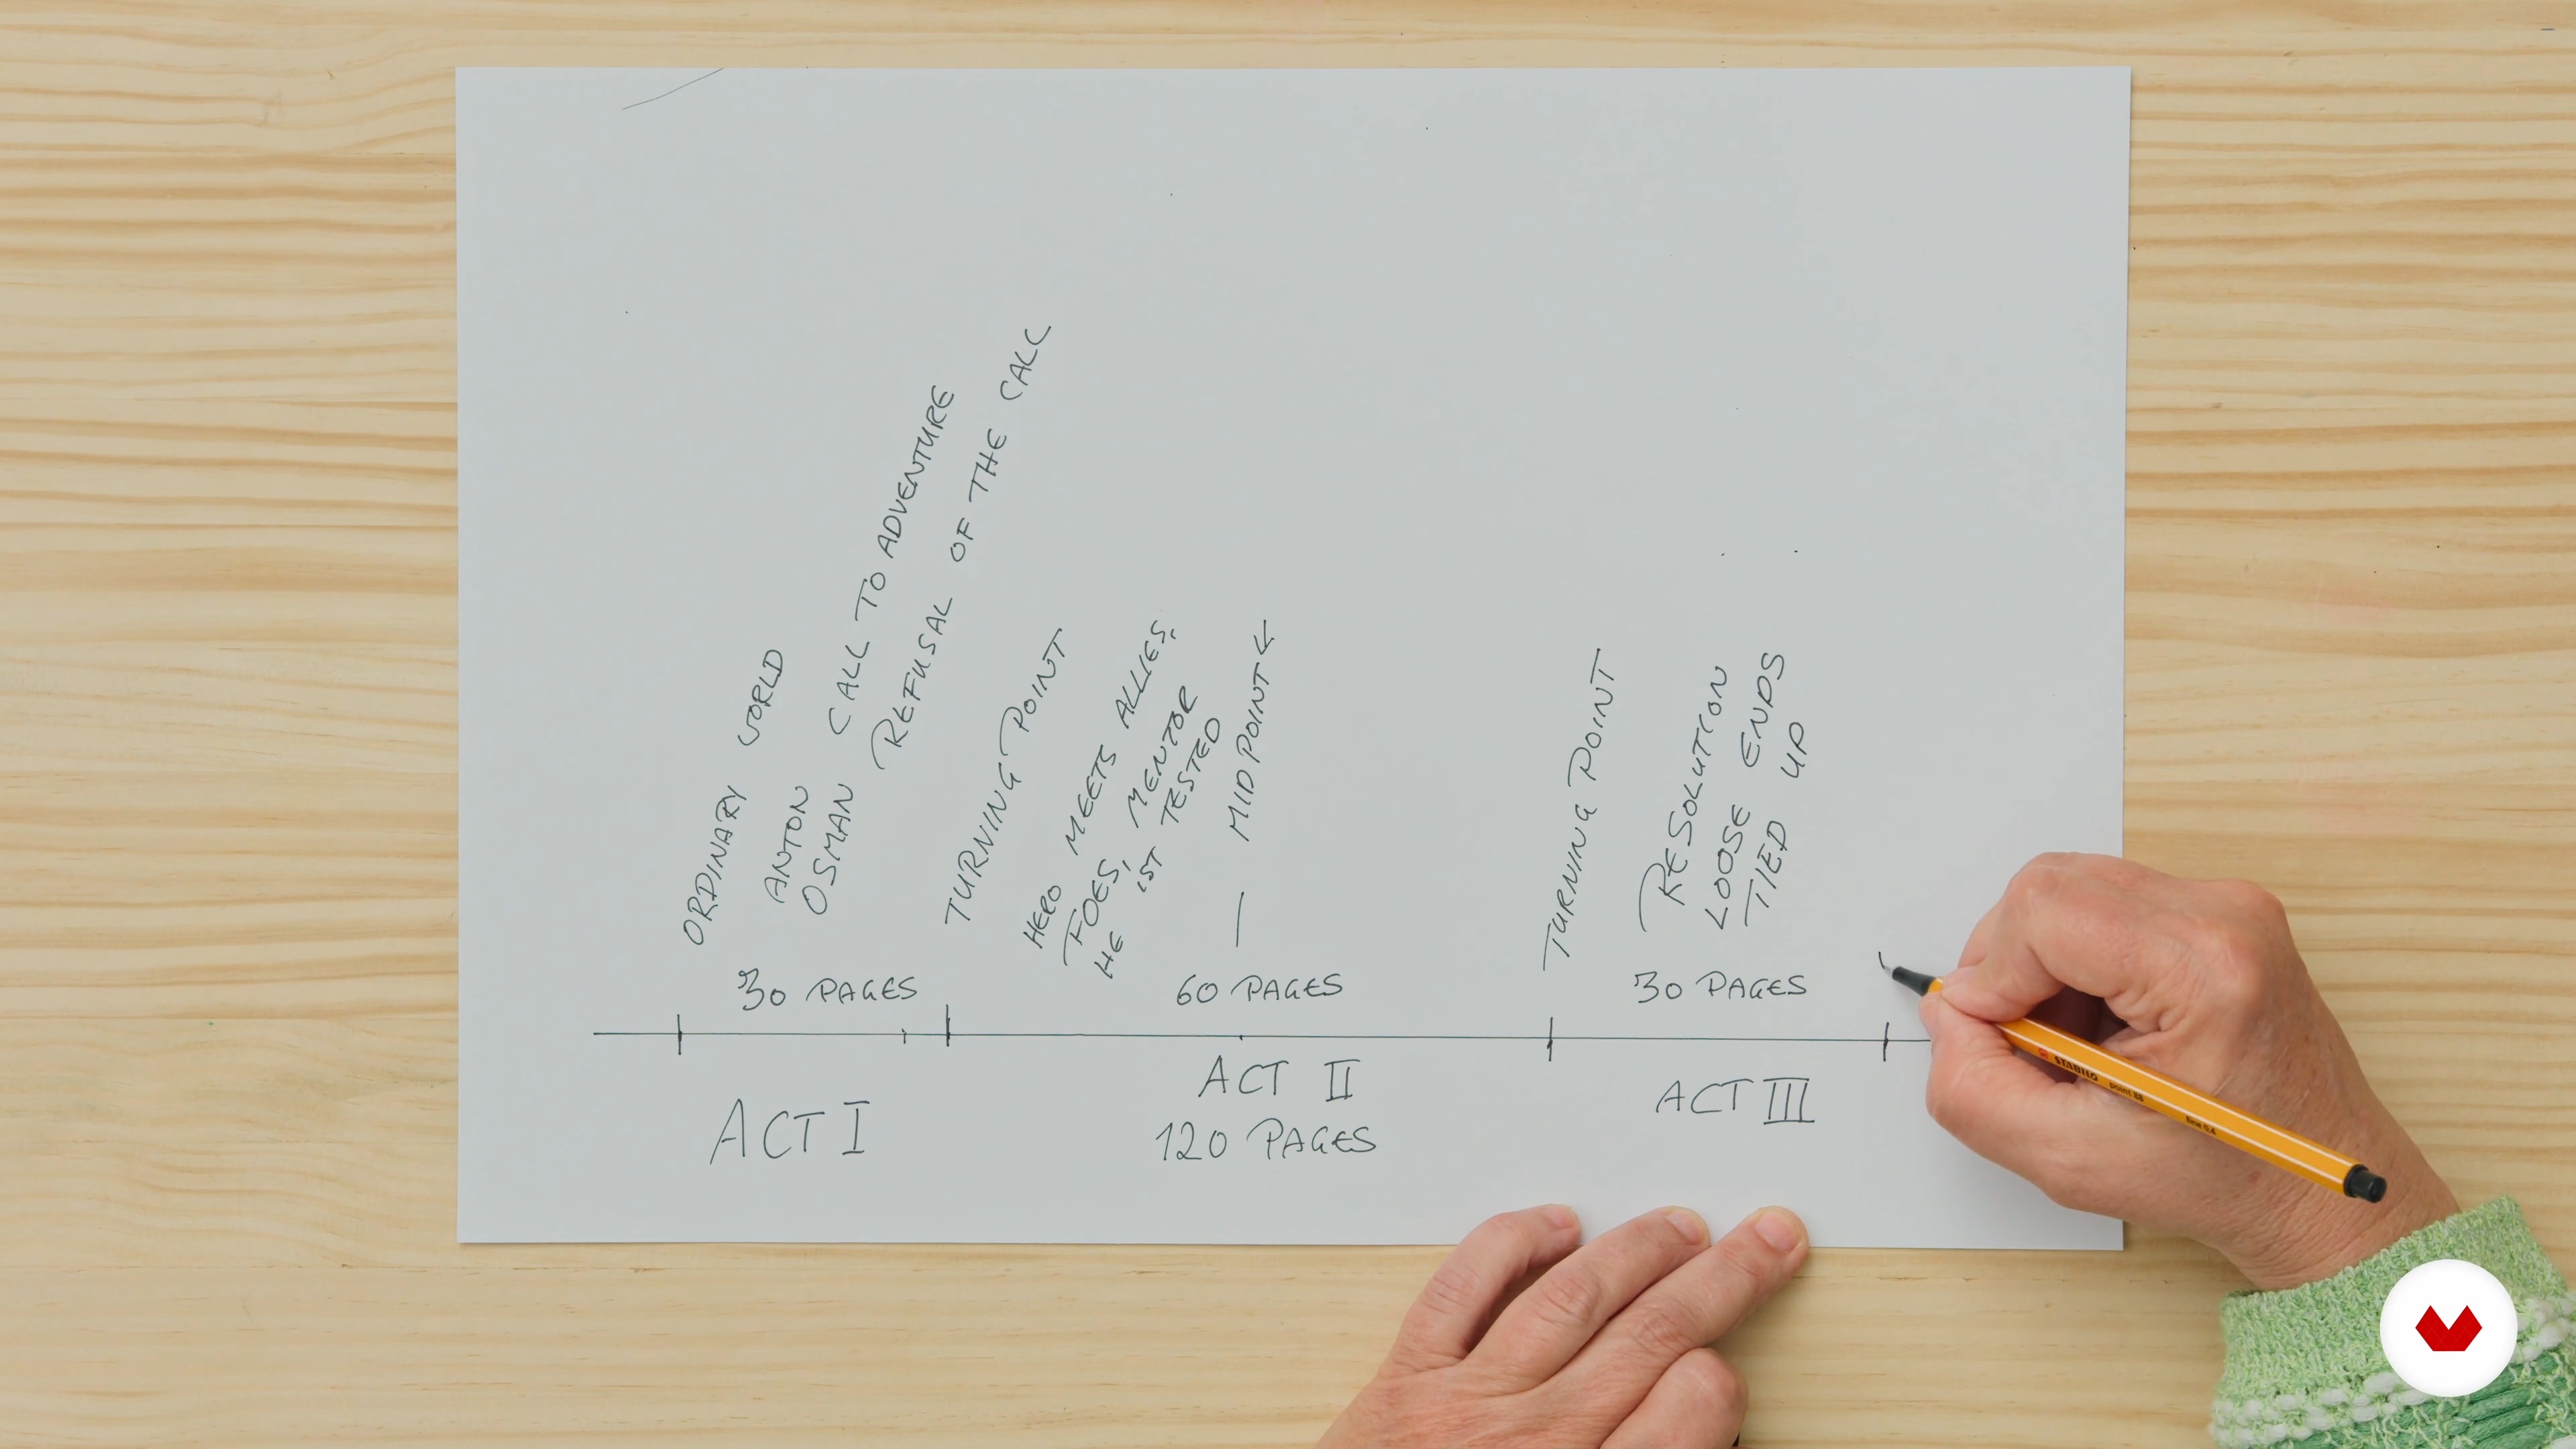 ORDINARY WORLD
ANTON
OSMAN
CALL TO ADVENTURE
REFUSAL OF THE CALL
TURNING POINT
HERO MEETS ALLIES,
FOES, MENTOR
HE IST TESTED
MIDPOINT
TURNING POINT
RESOLUTION
LOOSE ENDS
TIED UP
30 PAGES
60 PAGES
30 PAGES
ACT I
ACT II
120 PAGES
ACT III
STABILO point 88 fine 0.4